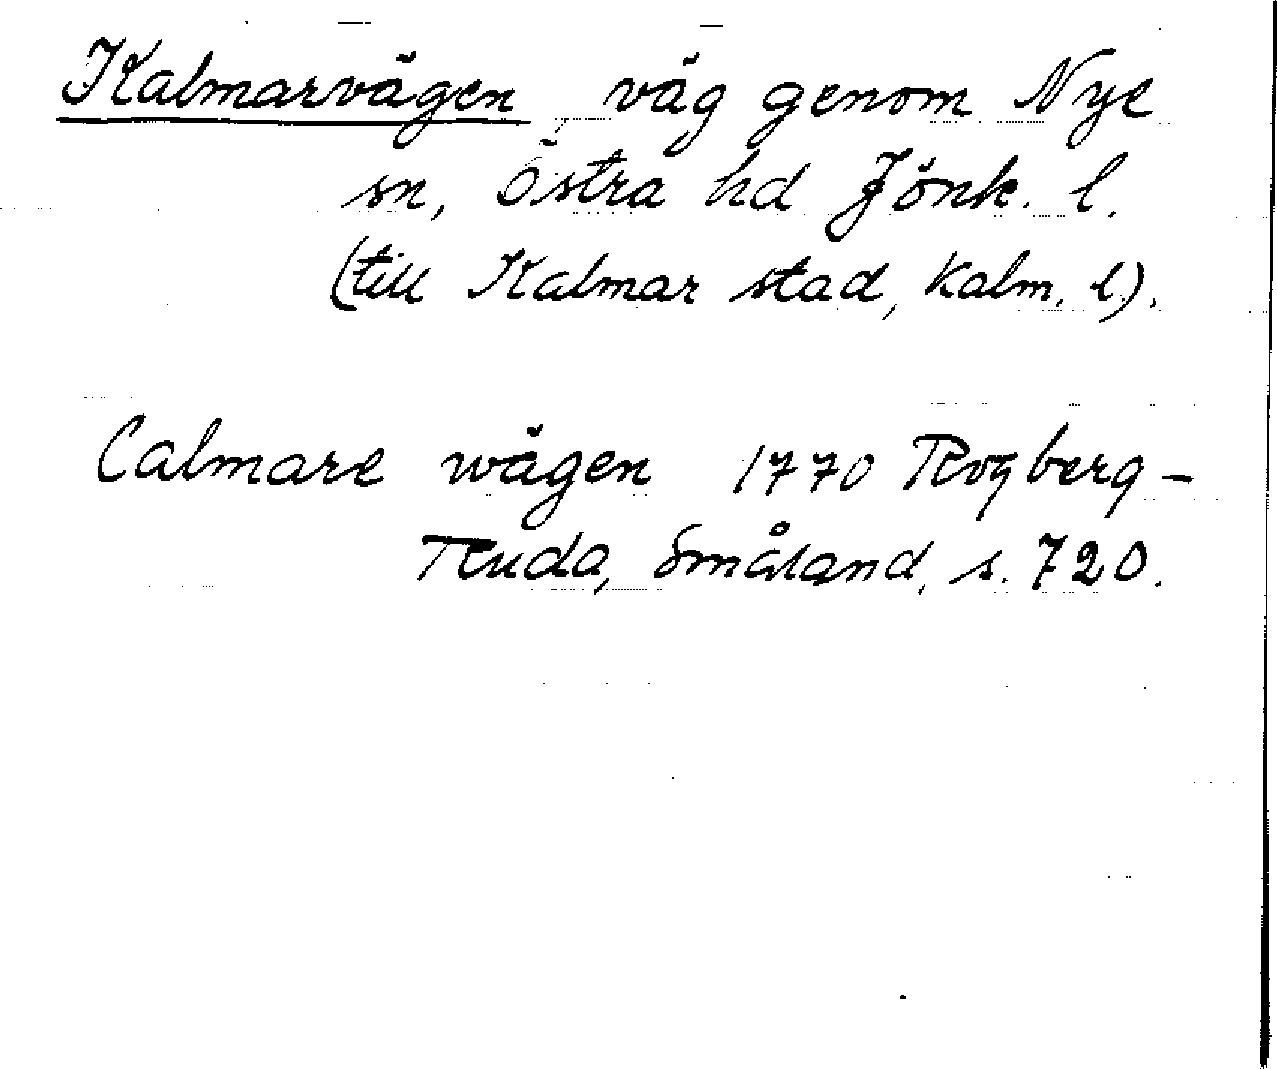 Kalmarvägen väg genom Nye
sn, Östra hd Jönk. l.
(till Kalmar stad, Kalm. l.).
Calmare wägen 1770 Rogberg-
Ruda, Småland, s. 720.